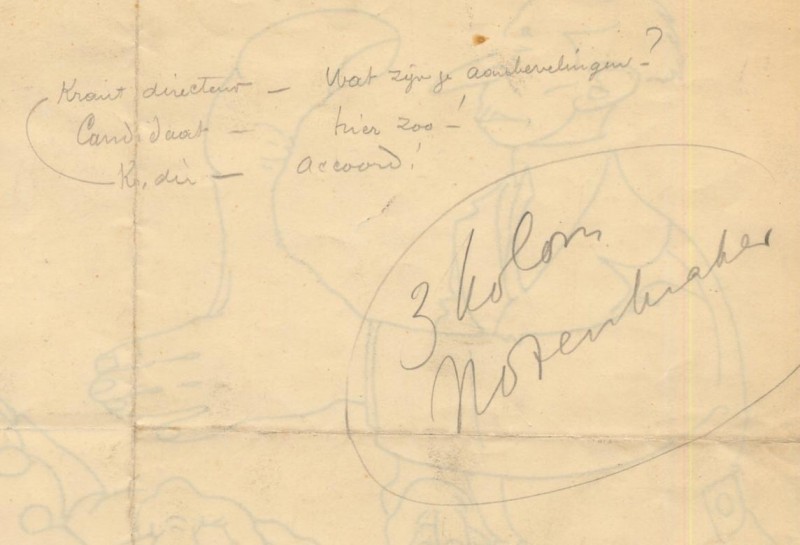 Krant directeur — Wat zijn je aanbevelingen?
Candidaat — hier zoo —!
Kr. dir — accoord!
3 kolom
Notenkraker